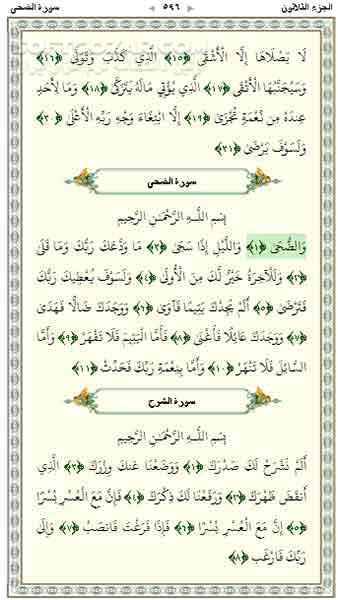 الجزء الثلاثون ◄ ٥٩٦ ► سورة الضحى
لَا يَصْلَاهَا إِلَّا الْأَشْقَى ﴿١٥﴾ الَّذِي كَذَّبَ وَتَوَلَّى ﴿١٦﴾
وَسَيُجَنَّبُهَا الْأَتْقَى ﴿١٧﴾ الَّذِي يُؤْتِي مَالَهُ يَتَزَكَّى ﴿١٨﴾ وَمَا لِأَحَدٍ
عِنْدَهُ مِن نِّعْمَةٍ تُجْزَى ﴿١٩﴾ إِلَّا ابْتِغَاءَ وَجْهِ رَبِّهِ الْأَعْلَى ﴿٢٠﴾
وَلَسَوْفَ يَرْضَى ﴿٢١﴾
سورة الضحى
بِسْمِ اللَّـهِ الرَّحْمَـٰنِ الرَّحِيمِ
وَالضُّحَى ﴿١﴾ وَاللَّيْلِ إِذَا سَجَى ﴿٢﴾ مَا وَدَّعَكَ رَبُّكَ وَمَا قَلَى
﴿٣﴾ وَلَلْآخِرَةُ خَيْرٌ لَّكَ مِنَ الْأُولَى ﴿٤﴾ وَلَسَوْفَ يُعْطِيكَ رَبُّكَ
فَتَرْضَى ﴿٥﴾ أَلَمْ يَجِدْكَ يَتِيمًا فَآوَى ﴿٦﴾ وَوَجَدَكَ ضَالًّا فَهَدَى
﴿٧﴾ وَوَجَدَكَ عَائِلًا فَأَغْنَى ﴿٨﴾ فَأَمَّا الْيَتِيمَ فَلَا تَقْهَرْ ﴿٩﴾ وَأَمَّا
السَّائِلَ فَلَا تَنْهَرْ ﴿١٠﴾ وَأَمَّا بِنِعْمَةِ رَبِّكَ فَحَدِّثْ ﴿١١﴾
سورة الشرح
بِسْمِ اللَّـهِ الرَّحْمَـٰنِ الرَّحِيمِ
أَلَمْ نَشْرَحْ لَكَ صَدْرَكَ ﴿١﴾ وَوَضَعْنَا عَنكَ وِزْرَكَ ﴿٢﴾ الَّذِي
أَنقَضَ ظَهْرَكَ ﴿٣﴾ وَرَفَعْنَا لَكَ ذِكْرَكَ ﴿٤﴾ فَإِنَّ مَعَ الْعُسْرِ يُسْرًا
﴿٥﴾ إِنَّ مَعَ الْعُسْرِ يُسْرًا ﴿٦﴾ فَإِذَا فَرَغْتَ فَانصَبْ ﴿٧﴾ وَإِلَى
رَبِّكَ فَارْغَب ﴿٨﴾